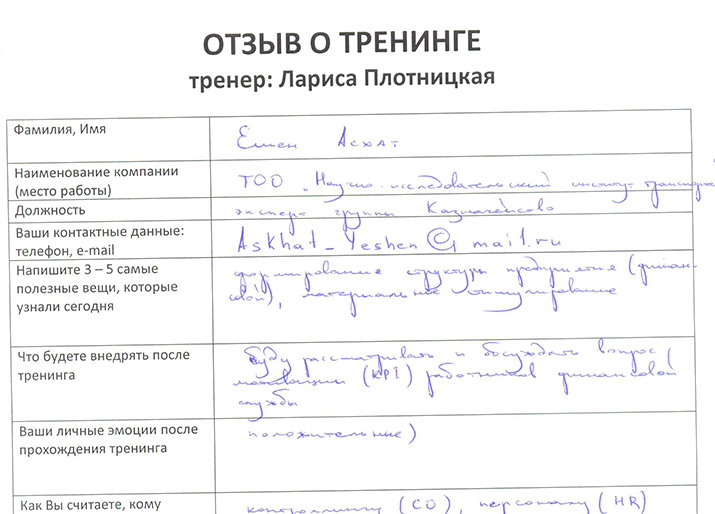 ОТЗЫВ О ТРЕНИНГЕ
тренер: Лариса Плотницкая
Фамилия, Имя
Ешен Асхат
Наименование компании
(место работы)
ТОО "Научно-исследовательский институт транспорта
Должность
эксперт группы Казначейство
Ваши контактные данные:
телефон, e-mail
Askhat_Yeshen@mail.ru
Напишите 3 – 5 самые
полезные вещи, которые
узнали сегодня
формирование структуры предприятия (финан-
совой), материальное стимулирование
Что будете внедрять после
тренинга
буду рассматривать и обсуждать вопрос
мотивации (KPI) работников финансовой
службы
Ваши личные эмоции после
прохождения тренинга
положительные)
Как Вы считаете, кому
контроллингу (CO), персоналу (HR)